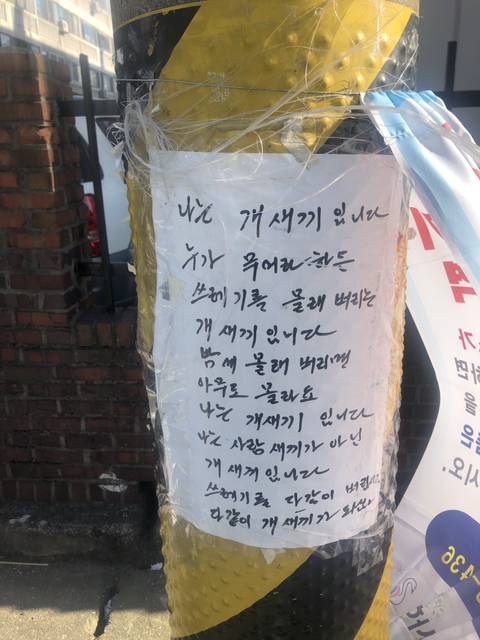 나는 개새끼 입니다
누가 무어라 한든
쓰레기를 몰래 버리는
개새끼 입니다
밤새 몰래 버리면
아무도 몰라요
나는 개새끼 입니다
나는 사람 새끼가 아닌
개새끼 입니다
쓰레기를 다같이
다같이 개새끼가